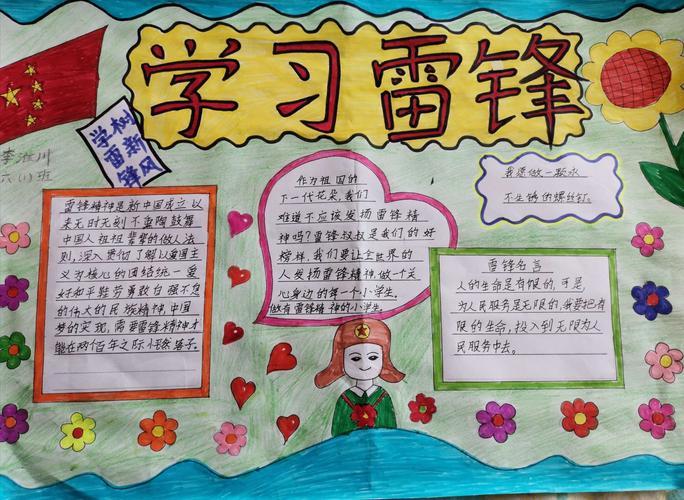 学习雷锋
学雷锋
树新风
六(1)班
雷锋精神是新中国成立以
来无时无刻不熏陶鼓舞
中国人祖祖辈辈的做人法
则,深入贯彻了解以爱国主
义为核心的团结统一爱
好和平勤劳勇敢自强不息
的伟大的民族精神,中国
梦的实现,需要雷锋精神才
能在两佰年之际
作为祖国的
下一代花朵,我们
难道不应该发扬雷锋精
神吗?雷锋叔叔是我们的好
榜样,我们要让全世界的
人发扬雷锋精神,做一个关
心身边的每一个小学生。
做有雷锋精神的小学生。
我愿做一颗永
不生锈的螺丝钉。
雷锋名言
人的生命是有限的,可是,
为人民服务是无限的,我要把有
限的生命,投入到无限为人
民服务中去。